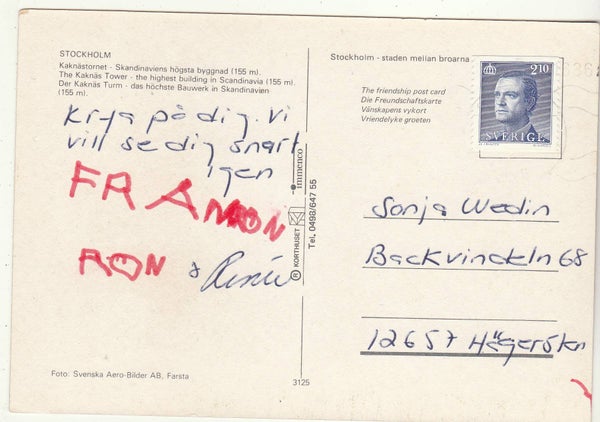 STOCKHOLM
Kaknästornet - Skandinaviens högsta byggnad (155 m).
The Kaknäs Tower - the highest building in Scandinavia (155 m).
Der Kaknäs Turm - das höchste Bauwerk in Skandinavien
(155 m).
Krya på dig. Vi
vill se dig snart
igen
FRÅN
RÖN
& Renée
Foto: Svenska Aero-Bilder AB, Farsta
3125
® KORTHUSET
Tel. 0498/647 55
immenco
Stockholm - staden mellan broarna
The friendship post card
Die Freundschaftskarte
Vänskapens vykort
Vriendelyke groeten
210
SVERIGE
Sonja Wedin
Backvindeln 68
12657 Hägersten